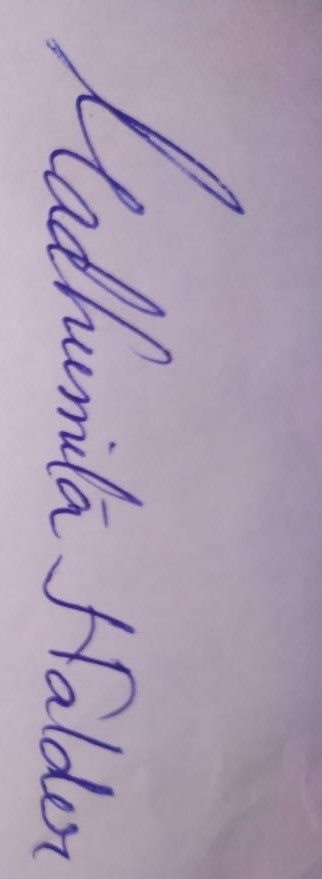 Madhumita Halder